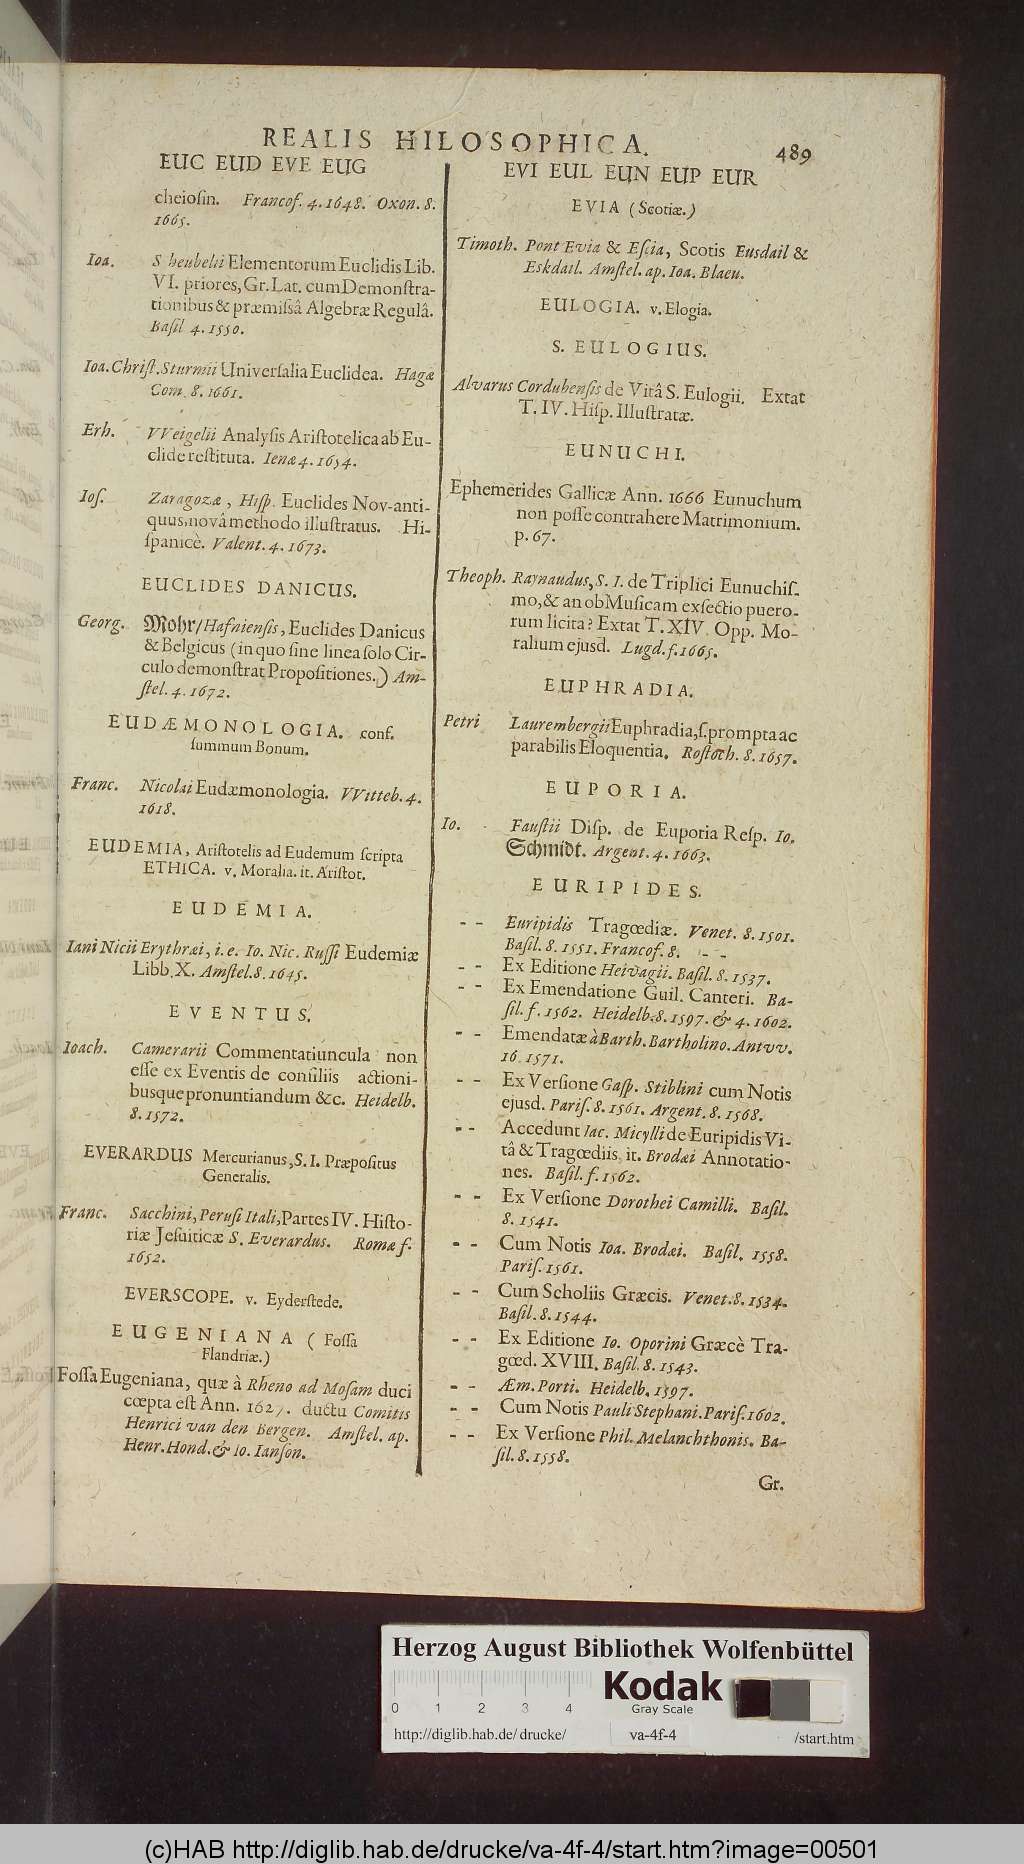 REALIS HILOSOPHICA.
489
EUC EUD EVE EUG
cheiosin. Francof. 4. 1648. Oxon. 8.
1665.
Ioa. Scheubelii Elementorum Euclidis Lib.
VI. priores, Gr. Lat. cum Demonſtra-
tionibus & præmiſsâ Algebræ Regulâ.
Baſil 4. 1550.
Ioa. Chriſt. Sturmii Univerſalia Euclidea. Hagæ
Com. 8. 1661.
Erh. VVeigelii Analyſis Ariſtotelica ab Eu-
clide reſtituta. Ienæ 4. 1654.
Ioſ. Zaragozæ, Hiſp. Euclides Nov-anti-
quus, novâ methodo illuſtratus. Hi-
ſpanicè. Valent. 4. 1673.
EUCLIDES DANICUS.
Georg. Mohr/ Hafnienſis, Euclides Danicus
& Belgicus (in quo ſine linea ſolo Cir-
culo demonſtrat Propoſitiones.) Am-
ſtel. 4. 1672.
EUDÆMONOLOGIA. conf.
ſummum Bonum.
Franc. Nicolai Eudæmonologia. VVitteb. 4.
1618.
EUDEMIA, Ariſtotelis ad Eudemum ſcripta
ETHICA. v. Moralia. it. Ariſtot.
EUDEMIA.
Iani Nicii Erythræi, i. e. Io. Nic. Ruſſi Eudemiæ
Libb. X. Amſtel. 8. 1645.
EVENTUS.
Ioach. Camerarii Commentatiuncula non
eſſe ex Eventis de conſiliis actioni-
busque pronuntiandum &c. Heidelb.
8. 1572.
EVERARDUS Mercurianus, S. I. Præpoſitus
Generalis.
Franc. Sacchini, Peruſi Itali, Partes IV. Hiſto-
riæ Jeſuiticæ S. Everardus. Romæ f.
1652.
EVERSCOPE. v. Eyderſtede.
EUGENIANA (Foſſa
Flandriæ.)
Foſſa Eugeniana, quæ à Rheno ad Moſam duci
cœpta eſt Ann. 1627. ductu Comitis
Henrici van den Bergen. Amſtel. ap.
Henr. Hond. & Io. Ianſon.
EVI EUL EUN EUP EUR
EVIA (Scotiæ.)
Timoth. Pont Evia & Eſcia, Scotis Eusdail &
Eskdail. Amſtel. ap. Ioa. Blaeu.
EULOGIA. v. Elogia.
S. EULOGIUS.
Alvarus Cordubenſis de Vitâ S. Eulogii. Extat
T. IV. Hiſp. Illuſtratæ.
EUNUCHI.
Ephemerides Gallicæ Ann. 1666 Eunuchum
non poſſe contrahere Matrimonium.
p. 67.
Theoph. Raynaudus, S. I. de Triplici Eunuchiſ-
mo, & an ob Muſicam exſectio puero-
rum licita? Extat T. XIV. Opp. Mo-
ralium ejusd. Lugd. f. 1665.
EUPHRADIA.
Petri Laurembergii Euphradia, ſ. prompta ac
parabilis Eloquentia. Roſtoch. 8. 1657.
EUPORIA.
Io. Fauſtii Diſp. de Euporia Reſp. Io.
Schmidt. Argent. 4. 1663.
EURIPIDES.
- - Euripidis Tragœdiæ. Venet. 8. 1501.
Baſil. 8. 1551. Francof. 8. - -
- - Ex Editione Heivagii. Baſil. 8. 1537.
- - Ex Emendatione Guil. Canteri. Ba-
ſil. f. 1562. Heidelb. 8. 1597. & 4. 1602.
- - Emendatæ à Barth. Bartholino. Antvv.
16. 1571.
- - Ex Verſione Gaſp. Stiblini cum Notis
ejusd. Pariſ. 8. 1561. Argent. 8. 1568.
- - Accedunt Iac. Micylli de Euripidis Vi-
tâ & Tragœdiis, it. Brodæi Annotatio-
nes. Baſil. f. 1562.
- - Ex Verſione Dorothei Camilli. Baſil.
8. 1541.
- - Cum Notis Ioa. Brodæi. Baſil. 1558.
Pariſ. 1561.
- - Cum Scholiis Græcis. Venet. 8. 1534.
Baſil. 8. 1544.
- - Ex Editione Io. Oporini Græcè Tra-
gœd. XVIII. Baſil. 8. 1543.
- - Æm. Porti. Heidelb. 1597.
- - Cum Notis Pauli Stephani. Pariſ. 1602.
- - Ex Verſione Phil. Melanchthonis. Ba-
ſil. 8. 1558.
Gr.
Herzog August Bibliothek Wolfenbüttel
Kodak
Gray Scale
0 1 2 3 4
http://diglib.hab.de/drucke/ va-4f-4 /start.htm
(c)HAB http://diglib.hab.de/drucke/va-4f-4/start.htm?image=00501